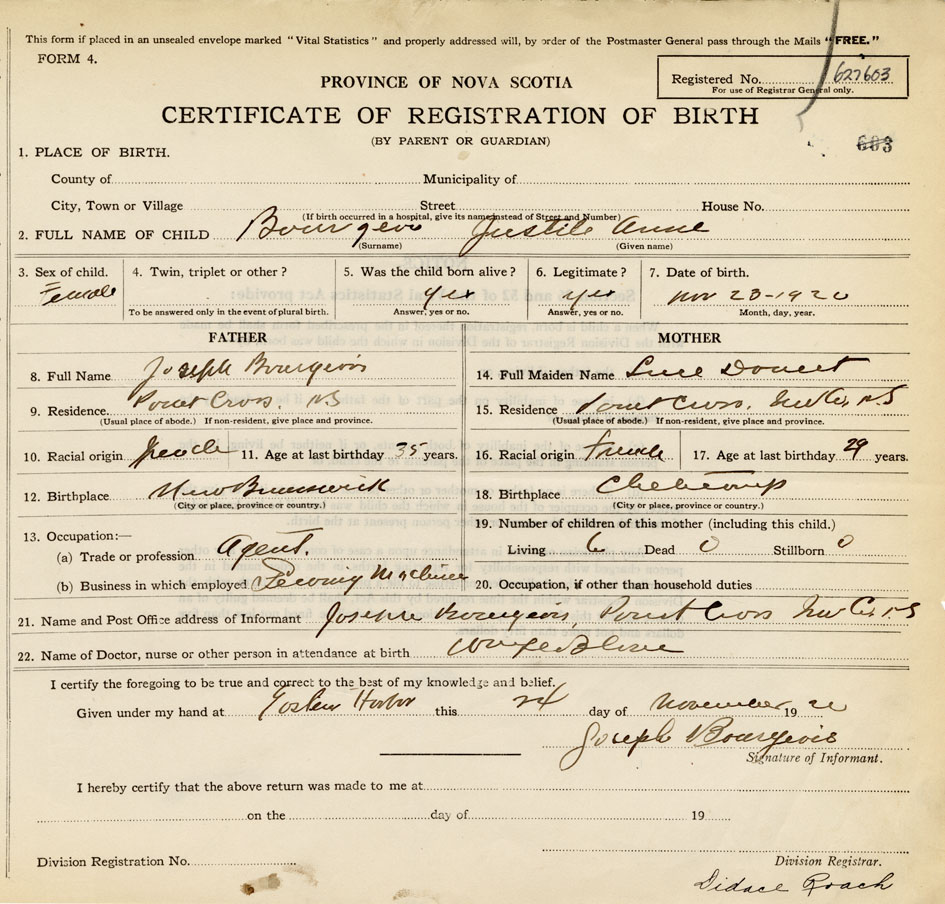 This form if placed in an unsealed envelope marked "Vital Statistics" and properly addressed will, by order of the Postmaster General pass through the Mails "FREE."
FORM 4.
Registered No. 627603
For use of Registrar General only.
PROVINCE OF NOVA SCOTIA
CERTIFICATE OF REGISTRATION OF BIRTH
(BY PARENT OR GUARDIAN)
603
1. PLACE OF BIRTH.
County of Municipality of
City, Town or Village Street House No.
(If birth occurred in a hospital, give its name instead of Street and Number)
2. FULL NAME OF CHILD Bourgeois Anne
(Surname) (Given name)
3. Sex of child. 4. Twin, triplet or other? 5. Was the child born alive? 6. Legitimate? 7. Date of birth.
Female yes yes Nov 23-1920
To be answered only in the event of plural birth. Answer, yes or no. Answer, yes or no. Month, day, year.
FATHER MOTHER
8. Full Name Joseph Bourgeois 14. Full Maiden Name Luce Doucet
9. Residence Point Cross, NS 15. Residence Point Cross, N.S
(Usual place of abode.) If non-resident, give place and province. (Usual place of abode.) If non-resident, give place and province.
10. Racial origin French 11. Age at last birthday 35 years. 16. Racial origin French 17. Age at last birthday 29 years.
12. Birthplace New Brunswick 18. Birthplace Cheticamp
(City or place, province or country.) (City or place, province or country.)
13. Occupation:— 19. Number of children of this mother (including this child.)
(a) Trade or profession Agent. Living 6 Dead 0 Stillborn 0
(b) Business in which employed Machine 20. Occupation, if other than household duties
21. Name and Post Office address of Informant Joseph Bourgeois, Point Cross N.S
22. Name of Doctor, nurse or other person in attendance at birth
I certify the foregoing to be true and correct to the best of my knowledge and belief.
Given under my hand at this 24 day of November 19 20
Joseph Bourgeois
Signature of Informant.
I hereby certify that the above return was made to me at
on the day of 19
Division Registration No. Division Registrar.
Didace Roach